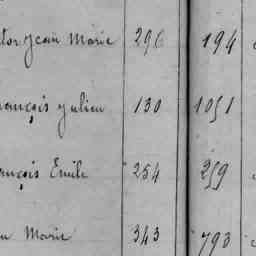 tor Jean Marie 296 194
rançois Julien 130 1051
ançois Emile 254 259
n Marie 343 793